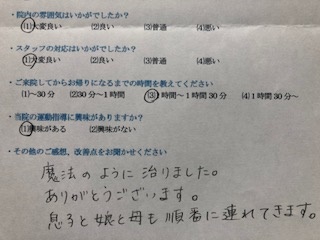 ・院内の雰囲気はいかがでしたか？
(1)大変良い (2)良い (3)普通 (4)悪い
・スタッフの対応はいかがでしたか？
(1)大変良い (2)良い (3)普通 (4)悪い
・ご来院してからお帰りになるまでの時間を教えてください
(1)～30分 (2)30分～1時間 (3)1時間～1時間30分 (4)1時間30分～
・当院の運動指導に興味がありますか？
(1)興味がある (2)興味がない
・その他のご感想、改善点をお聞かせください
魔法のように治りました。
ありがとうございます。
息子と娘と母も順番に連れてきます。